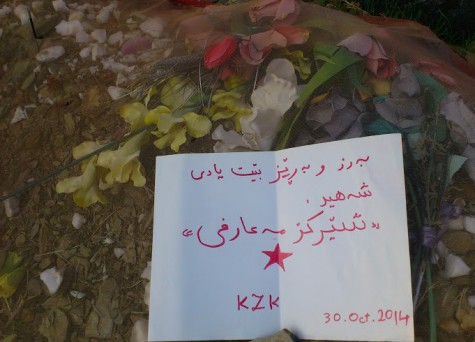 بەرز و بەڕێز بێت یادی
شەهید .
«شێرکۆ مەعارفی»
KZK
30.Oct.2014